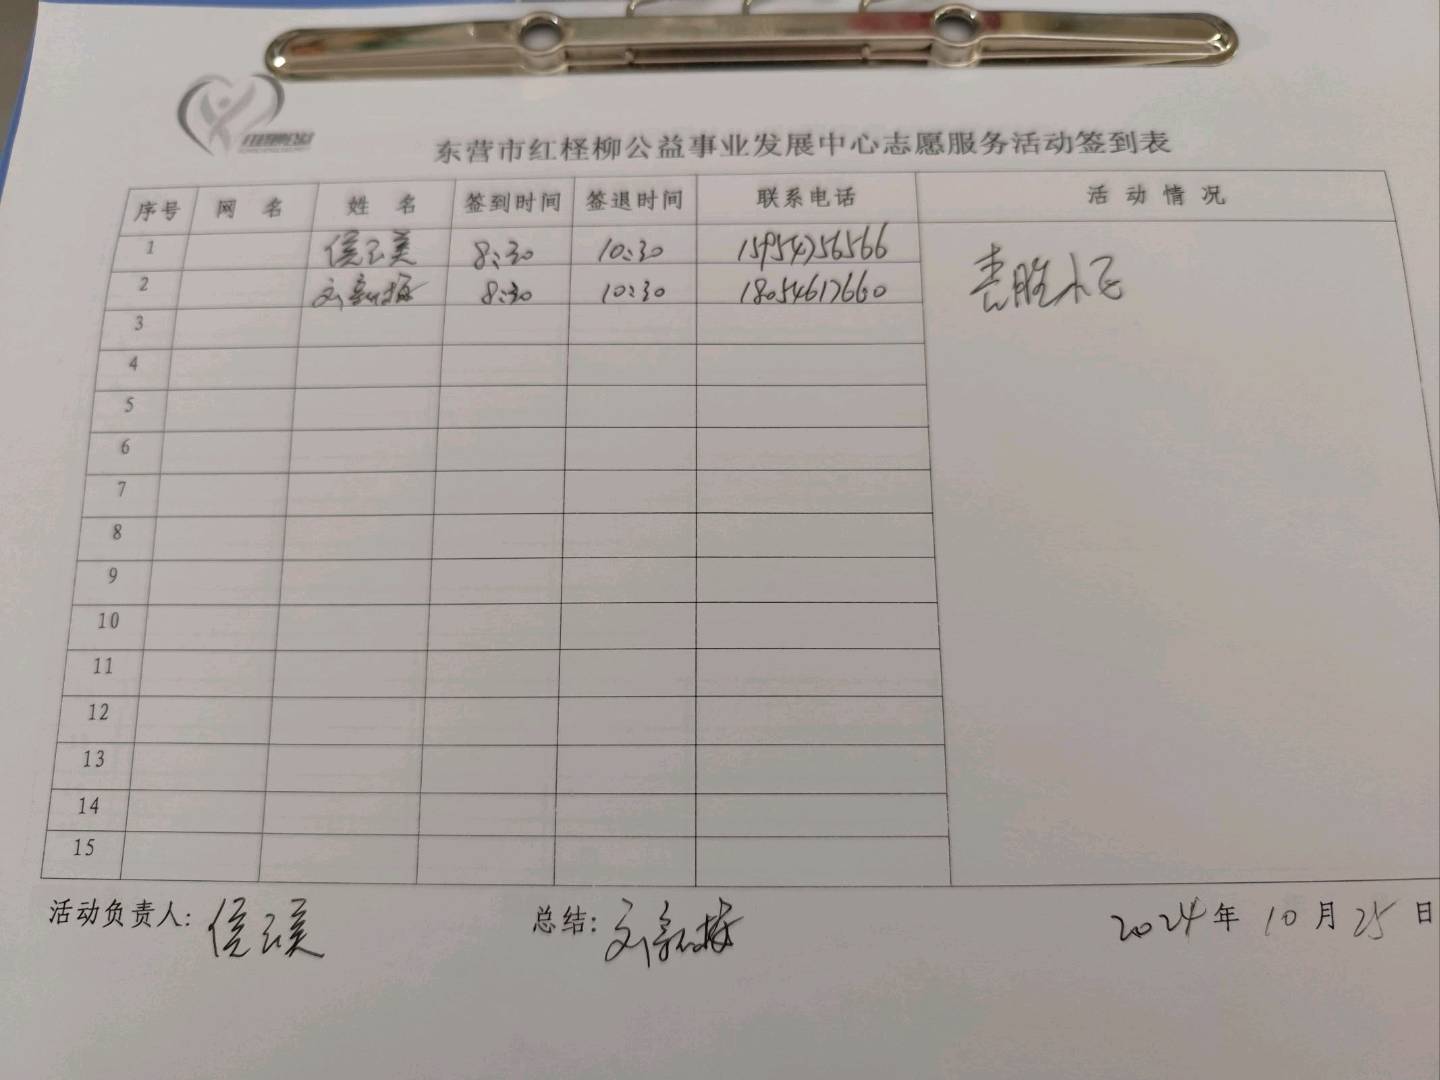 东营市红柽柳公益事业发展中心志愿服务活动签到表
序号 网 名 姓 名 签到时间 签退时间 联系电话 活 动 情 况
1 侯云美 8:30 10:30 15954756566
2 刘新梅 8:30 10:30 18054617660
3
4
5
6
7
8
9
10
11
12
13
14
15
活动负责人: 侯云美 总结: 刘新梅 2024年 10月 25日